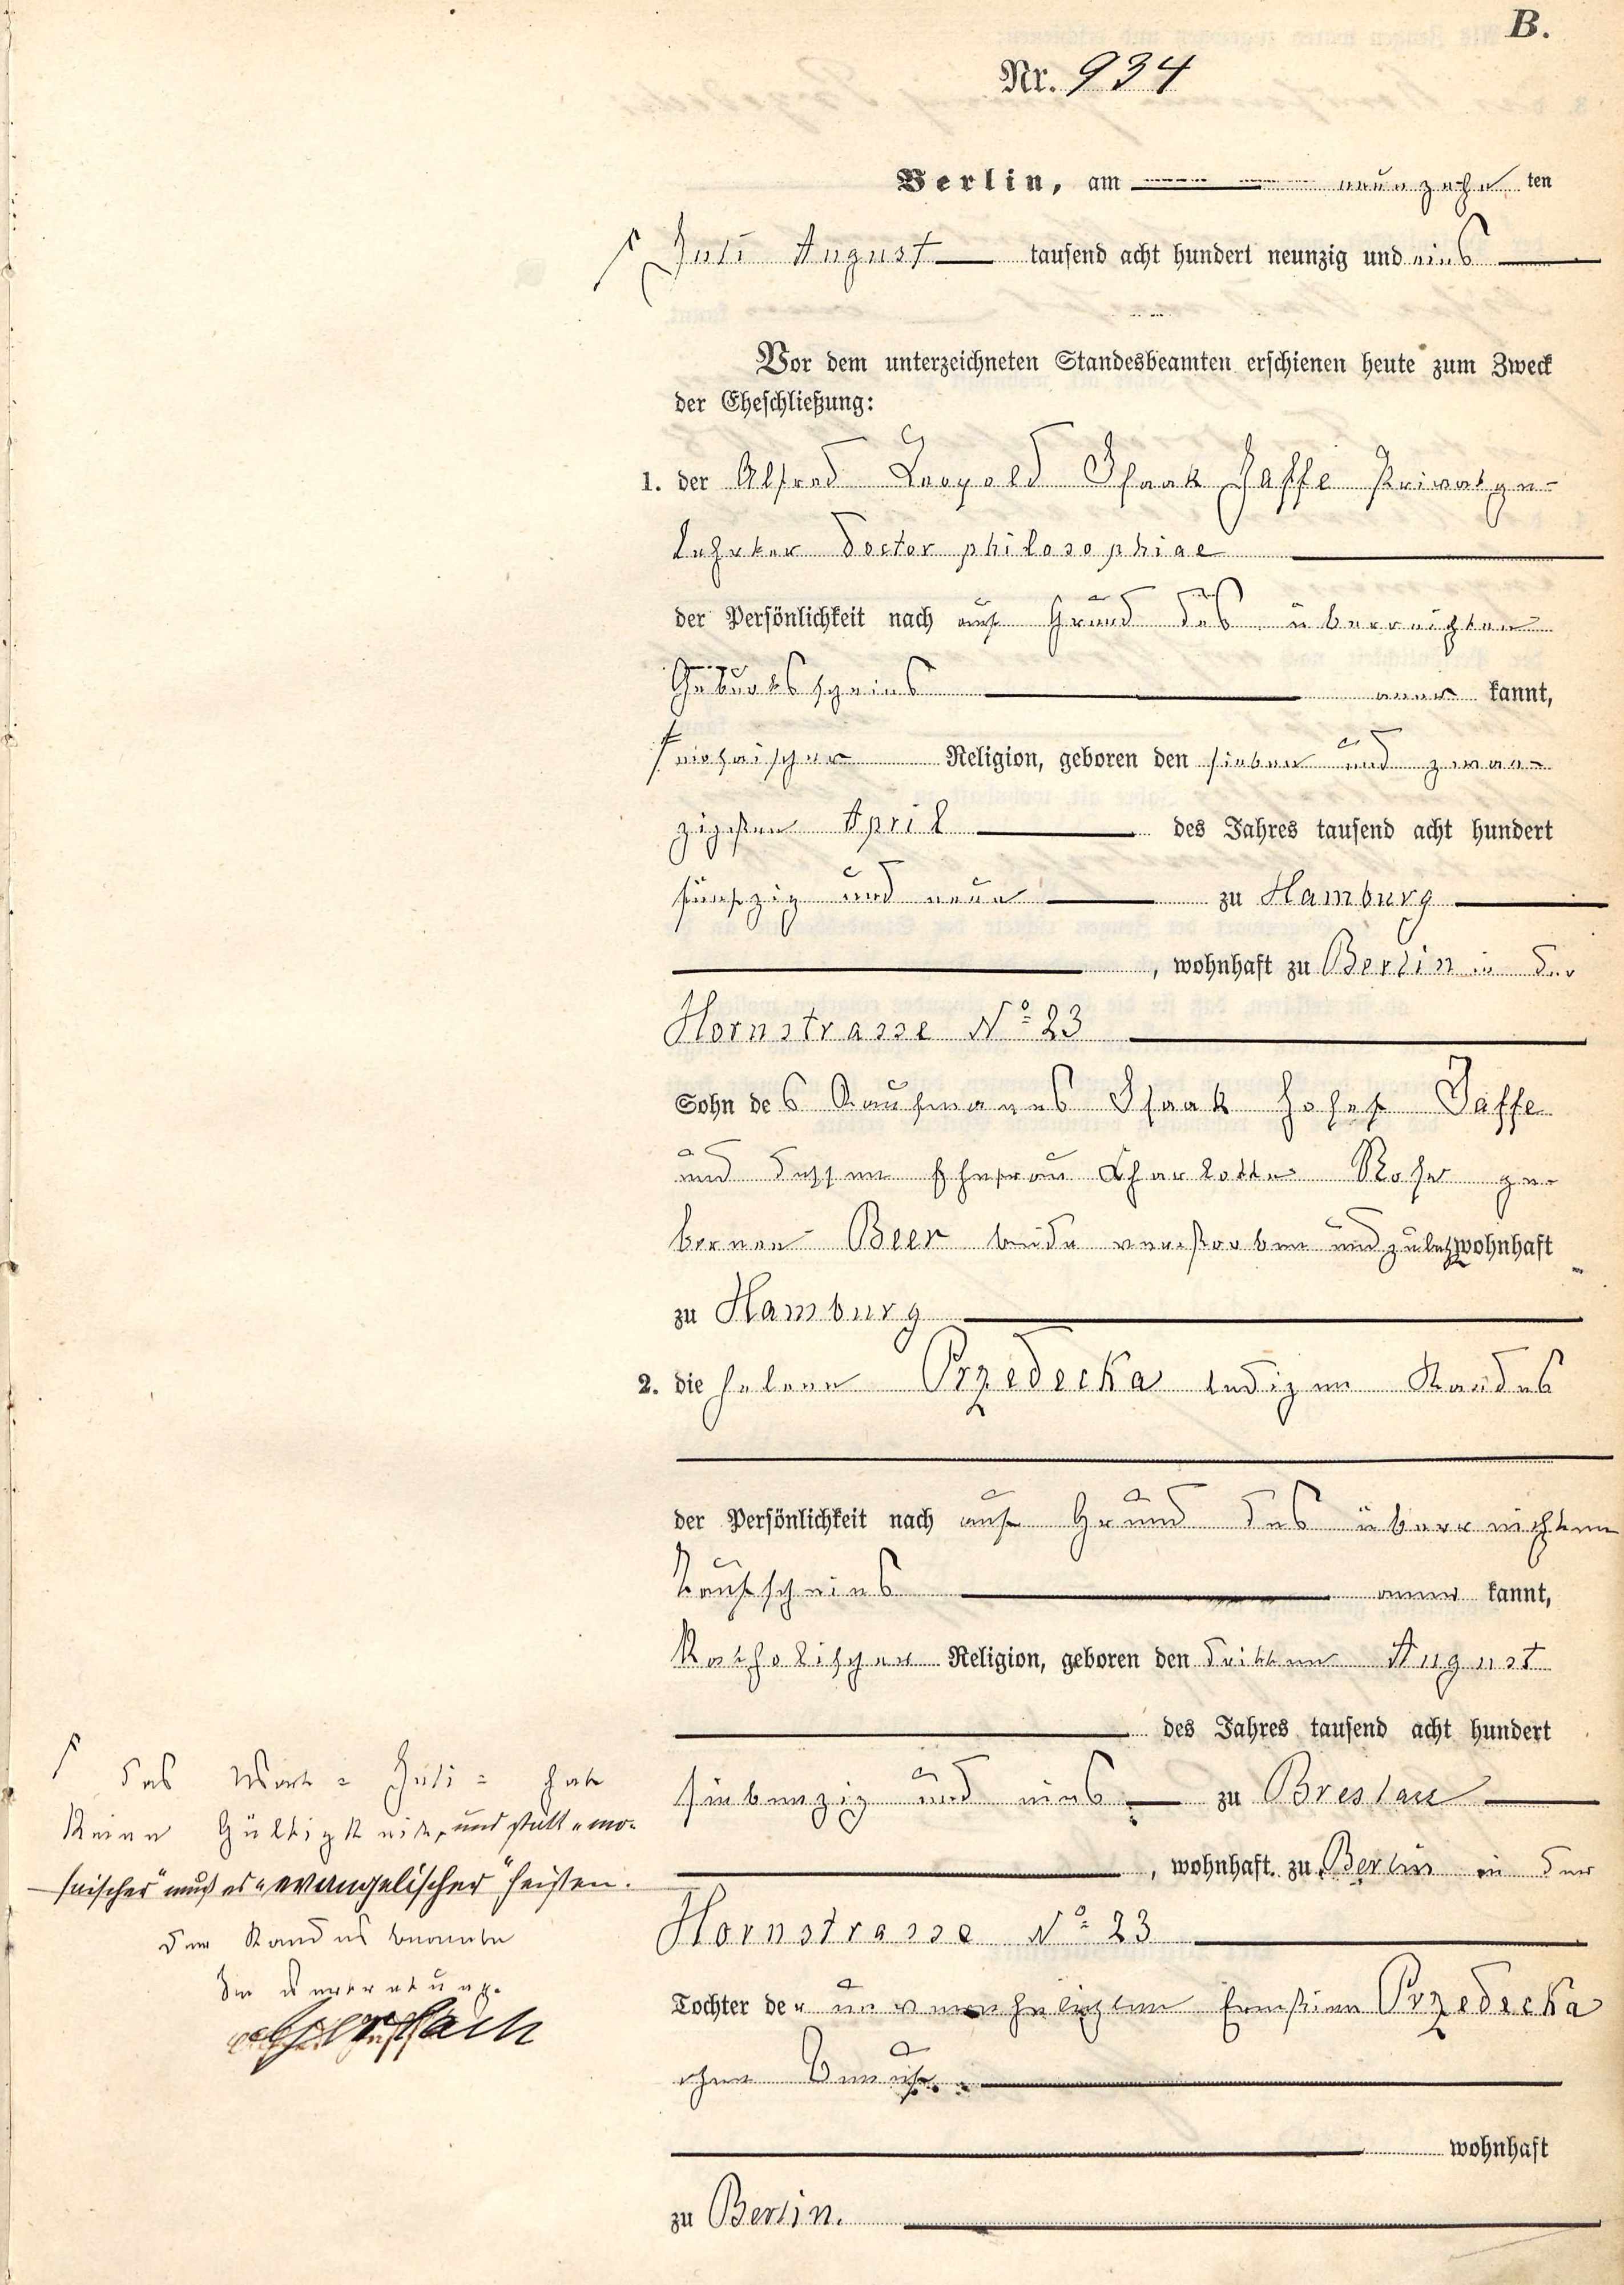 B.
Nr. 934
Berlin, am neunzehn ten
Juli August tausend acht hundert neunzig und eins
Vor dem unterzeichneten Standesbeamten erschienen heute zum Zweck
der Eheschließung:
1. der Alfred Leopold Isaak Jaffe Privatge-
lehrter Doctor philosophiae
der Persönlichkeit nach auf Grund des überreichten
Geburtsscheins aner kannt,
mosaischer Religion, geboren den sieben und zwan-
zigsten April des Jahres tausend acht hundert
fünfzig und neun zu Hamburg
, wohnhaft zu Berlin in der
Hornstrasse No 23
Sohn des Kaufmannes Isaak Josef Jaffe
und dessen Ehefrau Charlotte Rosa ge-
borenen Beer beide verstorben und zuletzt wohnhaft
zu Hamburg
2. die Helene Przedecka ledigen Standes
der Persönlichkeit nach auf Grund des überreichten
Taufscheins aner kannt,
katholischer Religion, geboren den dritten August
des Jahres tausend acht hundert
siebenzig und eins zu Breslau
, wohnhaft zu Berlin in der
Hornstrasse No 23
Tochter der unverehelichten Ernstine Przedecka
ohne Beruf
wohnhaft
zu Berlin.
Das Wort = Juli = hat
keine Gültigkeit, und statt "mo-
saischer" muß es "evangelischer" heißen.
Der Standesbeamte
In Vertretung.